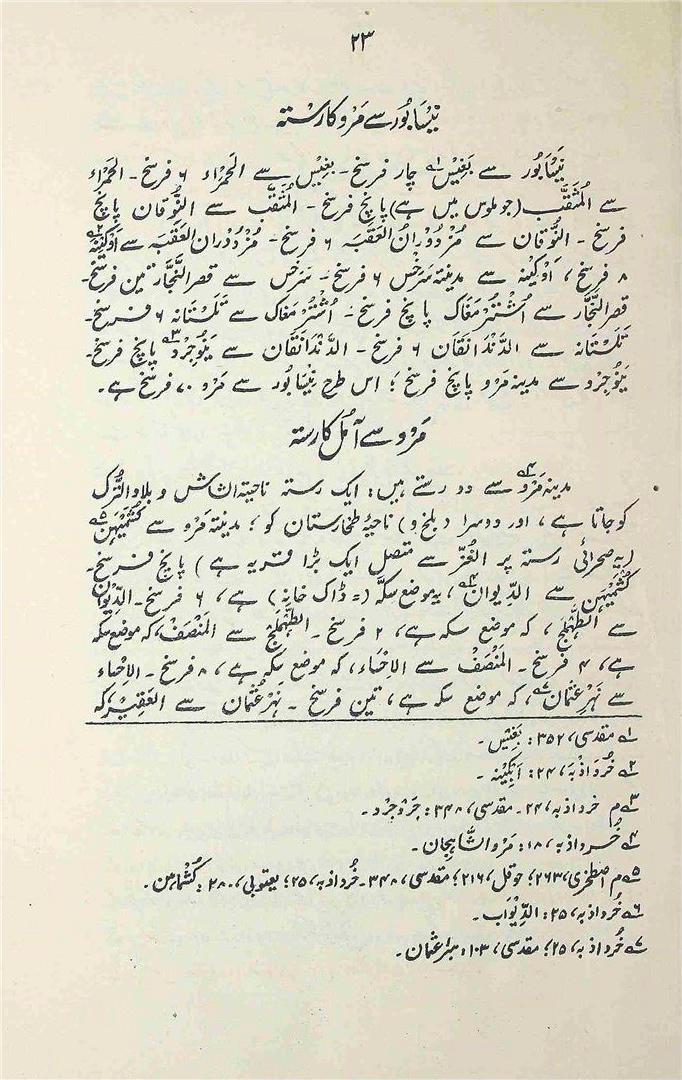 ۲۳
نیسَابُور سے مَرْو کا رستہ
نَیْسَابُور سے بَغِیْس۱ چار فرسخ ۔ بغِیْس سے الحَمْرَاء ۶ فرسخ ۔ الحَمْرَاء
سے المُثَقَّب (جو طوس میں ہے) پانچ فرسخ ۔ المُثَقَّب سے النُّوقان پانچ
فرسخ ۔ النُّوقان سے مُزْدُورَانُ العَقَبَہ ۶ فرسخ ۔ مُزْدُورَان العَقَبَہ سے اَوْکِیْنَہ۲
۸ فرسخ، اَوْکِیْنَہ سے مدینۃ سَرَخْس ۶ فرسخ ۔ سَرَخْس سے قصر النَّجَّار تین فرسخ ۔
قصر النَّجَّار سے اُشْتُرْمَغَاک پانچ فرسخ ۔ اُشْتُرْمَغَاک سے تَلَسْتَانَہ ۶ فرسخ ۔
تَلَسْتَانَہ سے الدَّنْدَانَقَان ۶ فرسخ ۔ الدَّنْدَانَقَان سے یَنُوجِرْد۳ پانچ فرسخ ۔
یَنُوجِرْد سے مدینہ مَرْو پانچ فرسخ؛ اس طرح نیْسَابُور سے مَرْو ۷۰ فرسخ ہے ۔
مَرْو سے آمُل کا رستہ
مدینہ مَرْو۴ سے دو رستے ہیں: ایک رستہ ناحیۃ الشاش و بلاد التُّرک
کو جاتا ہے، اور دوسرا (بلخ و) ناحیۂ طخارستان کو؛ مدینۃ مَرْو سے کُشْمَیْہَن۵
(یہ صحرائی رستہ پر الغُزّ سے متصل ایک بڑا قریہ ہے) پانچ فرسخ ۔
کُشْمَیْہَن سے الدِّیوان۶، یہ موضع سکّہ (= ڈاک خانہ) ہے، ۶ فرسخ ۔ الدِّیْوان
سے الطَّہْمَلَج، کہ موضع سکہ ہے، ۲ فرسخ ۔ الطَّہْمَلَج سے المَنْصَف، کہ موضع سکہ
ہے، ۴ فرسخ ۔ المَنْصَف سے الاِحْسَاء، کہ موضع سکہ ہے، ۸ فرسخ ۔ الاِحْسَاء
سے نَہْر عُثْمَان۷، کہ موضع سکہ ہے، تین فرسخ ۔ نَہْر عُثْمَان سے العَقِیْر، کہ
۱ مقدسی، ۳۵۲: بَغِیْشِن ۔
۲ خُرداذبہ، ۲۴: آبکِینہ ۔
۳ م خرداذبہ، ۲۴ ۔ مقدسی، ۳۴۸: جَرُوجِرد ۔
۴ خُرداذبہ، ۱۸: مَرْو الشَّاہِجان ۔
۵ م اصطخری، ۲۶۳؛ حوقل، ۲۱۶؛ مقدسی، ۳۴۸ ۔ خُرداذبہ، ۲۵؛ یعقوبی، ۲۸۰: کُشْمَاہَن ۔
۶ خرداذبہ، ۲۵: الدِّیْوَاب ۔
۷ خُرداذبہ، ۲۵؛ مقدسی، ۱۰۳: بئر عثمان ۔